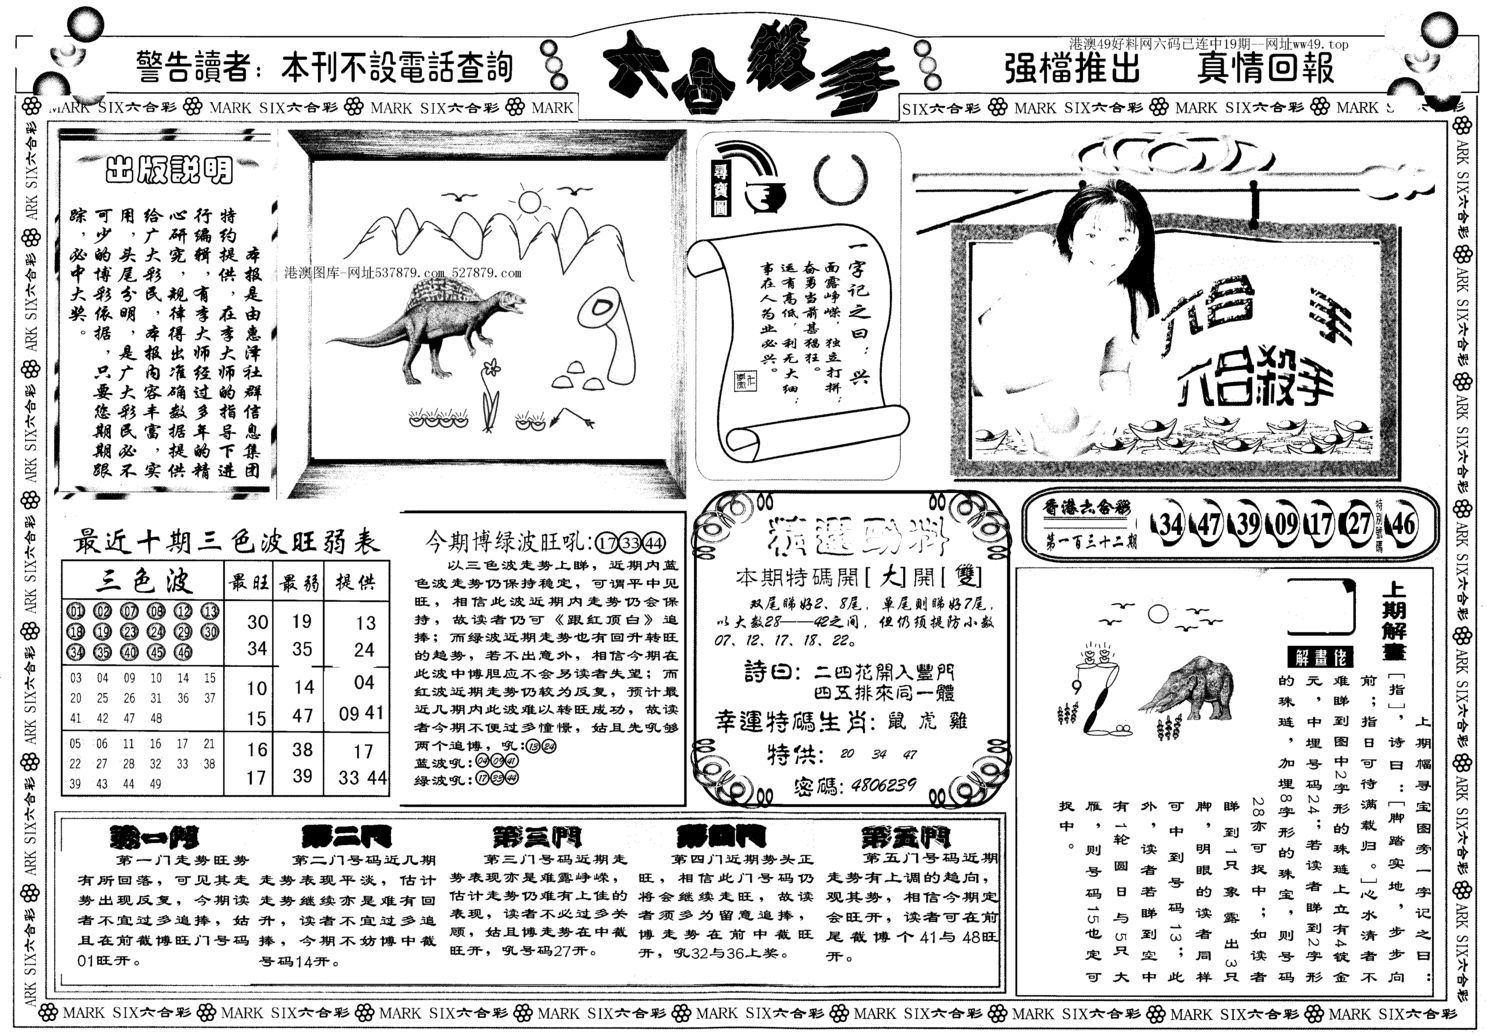 警告讀者：本刊不設電話查詢
六合殺手
港澳49好料网六码已连中19期——网址ww49.top
强檔推出 真情回報
MARK SIX六合彩 MARK SIX六合彩 MARK SIX六合彩 MARK
SIX六合彩 MARK SIX六合彩 MARK SIX六合彩 MARK S
出版説明
本报是由惠泽社群信息集团
特约提供，在李大师的指导下进
行编辑，有李大师经过多年的精
心研究，规律得出准确数据提供
给广大彩民，本报内容丰富，实
用，头尾分明，是广大彩民必不
可少的博彩依据，只要您期期跟
踪，必中大奖。
港澳图库-网址537879.com 527879.com
尋寶圖
一字记之曰：兴
面露峥嵘，独立打拼；
奋勇当前甚猖狂。
运有高低，利无大细；
事在人为业必兴。
六合 手
六合殺手
香港六合彩
第一百三十二期
34 47 39 09 17 27 特别號碼 46
最近十期三色波旺弱表
三色波 最旺 最弱 提供
01 02 07 08 12 13
18 19 23 24 29 30
34 35 40 45 46
30 19 13
34 35 24
03 04 09 10 14 15
20 25 26 31 36 37
41 42 47 48
10 14 04
15 47 09 41
05 06 11 16 17 21
22 27 28 32 33 38
39 43 44 49
16 38 17
17 39 33 44
今期博绿波旺吼:17 33 44
以三色波走势上睇，近期内蓝
色波走势仍保持稳定，可谓平中见
旺，相信此波近期内走势仍会保
持，故读者仍可《跟红顶白》追
捧；而绿波近期走势也有回升转旺
的趋势，若不出意外，相信今期在
此波中博胆应不会另读者失望；而
红波近期走势仍较为反复，预计最
近几期内此波难以转旺成功，故读
者今期不便过多憧憬，姑且先吼够
两个追博，吼:13 24
蓝波吼:04 09 41
绿波吼:17 33 44
精選勁料
本期特碼開[大]開[雙]
双尾睇好2、8尾，单尾则睇好7尾，
以大数28——42之间，但仍须提防小数
07、12、17、18、22。
詩曰：二四花開入豐門
四五排來同一體
幸運特碼生肖：鼠 虎 雞
特供：20 34 47
密碼：4806239
上期解畫
解畫佬
上期幅寻宝图旁一字记之曰：
［指］，诗曰：［脚踏实地，步步向
前；指日可待满载归。］心水清者不
难睇到图中2字形的珠琏上立有4锭金
元，中埋号码24；若读者睇到2字形
的珠琏，加埋8字形的珠宝，则号码
28亦可捉中；如读者
睇到1只象露出3只
脚，明眼的读者同样
可中到号码13；此
外，读者若睇到空中
有1轮圆日与5只大
雁，则号码15也定可
捉中。
第一門
第一门走势旺势
有所回落，可见其走
势出现反复，今期读
者不宜过多追捧，姑
且在前截博旺门号码
01旺开。
第二門
第二门号码近几期
走势表现平淡，估计
走势继续亦是难有回
升，读者不宜过多追
捧，今期不妨博中截
号码14开。
第三門
第三门号码近期走
势表现亦是难露峥嵘，
估计走势仍难有上佳的
表现，读者不必过多关
顾，姑且博走势在中截
旺开，吼号码27开。
第四門
第四门近期势头正
旺，相信此门号码仍
将会继续走旺，故读
者须多为留意追捧，
博走势在前中截旺
开，吼32与36上奖。
第五門
第五门号码近期
走势有上调的趋向，
观其势，相信今期定
会旺开，读者可在前
尾截博个41与48旺
开。
MARK SIX六合彩 MARK SIX六合彩 MARK SIX六合彩 MARK SIX六合彩 MARK SIX六合彩 MARK SIX六合彩 MARK SIX六合彩 MARK SIX六合彩 MARK SIX六合彩